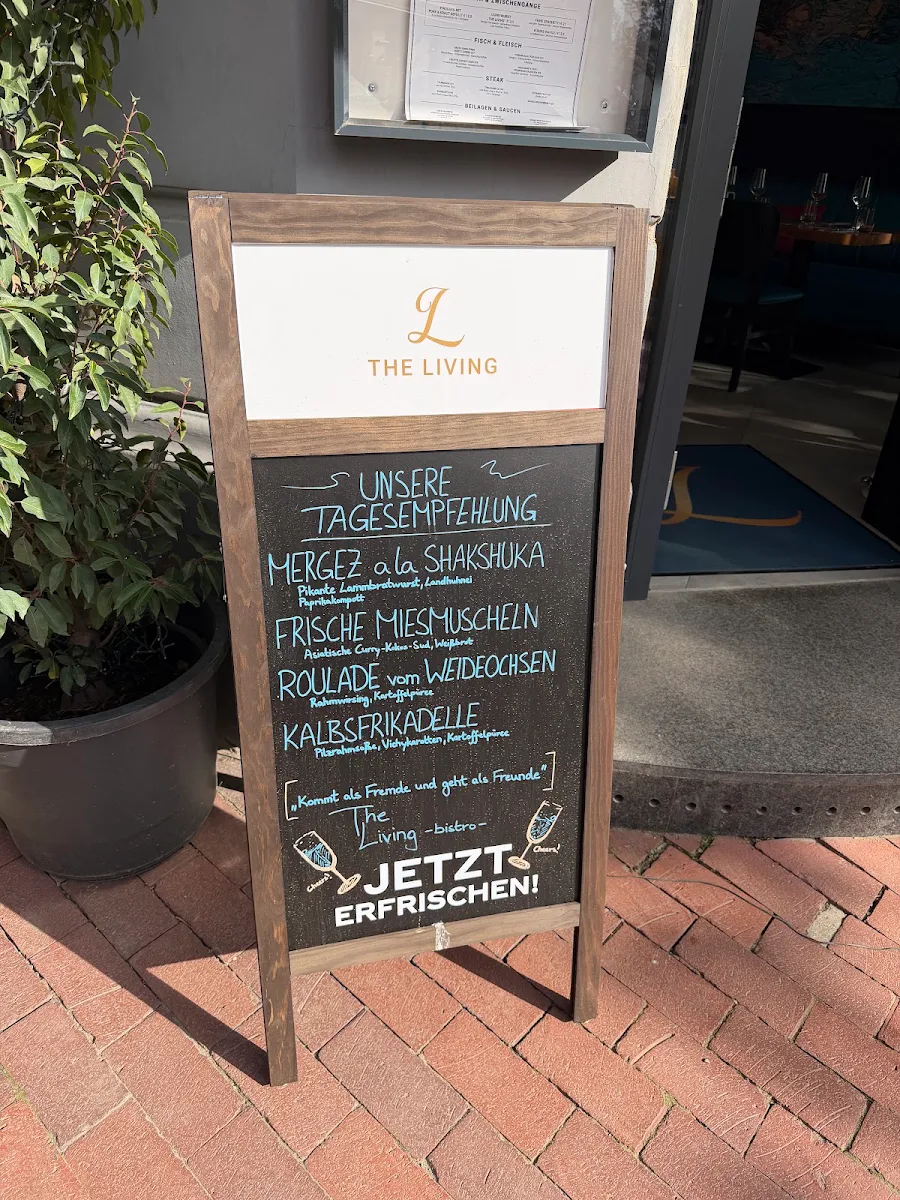 & ZWISCHENGÄNGE
FISCH & FLEISCH
STEAK
BEILAGEN & SAUCEN
L
THE LIVING
UNSERE
TAGESEMPFEHLUNG
MERGEZ a la SHAKSHUKA
Pikante Lammbratwurst, Landhuhnei
Paprikakompott
FRISCHE MIESMUSCHELN
Asiatische Curry-Kokos-Sud, Weißbrot
ROULADE vom WEIDEOCHSEN
Rahmwirsing, Kartoffelpüree
KALBSFRIKADELLE
Pilzrahmsoße, Vichykarotten, Kartoffelpüree
[„Kommt als Fremde und geht als Freunde"]
The
Living -bistro-
Cheers!
Cheers!
JETZT
ERFRISCHEN!